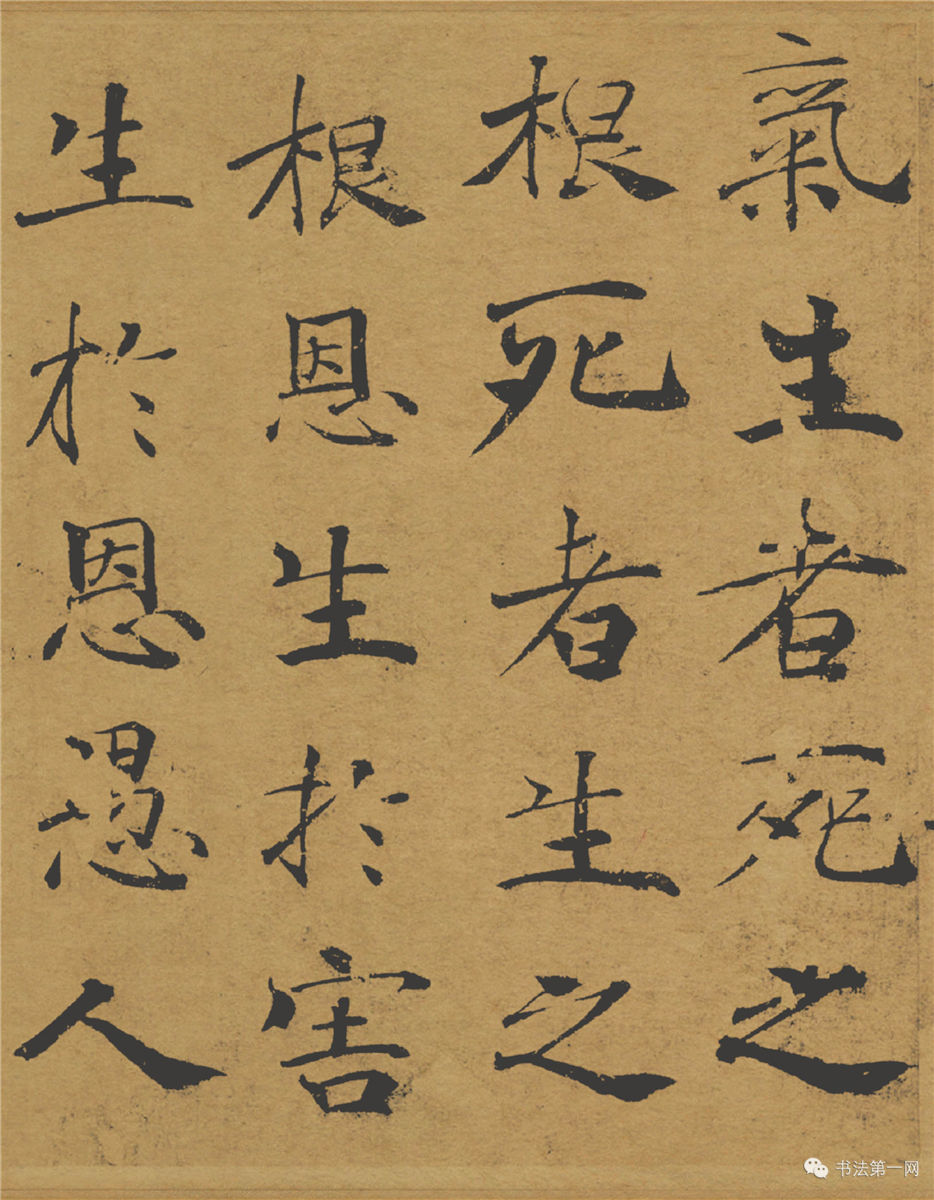 氣生者死之
根死者生之
根恩生於害
生於恩愚人
书法第一网